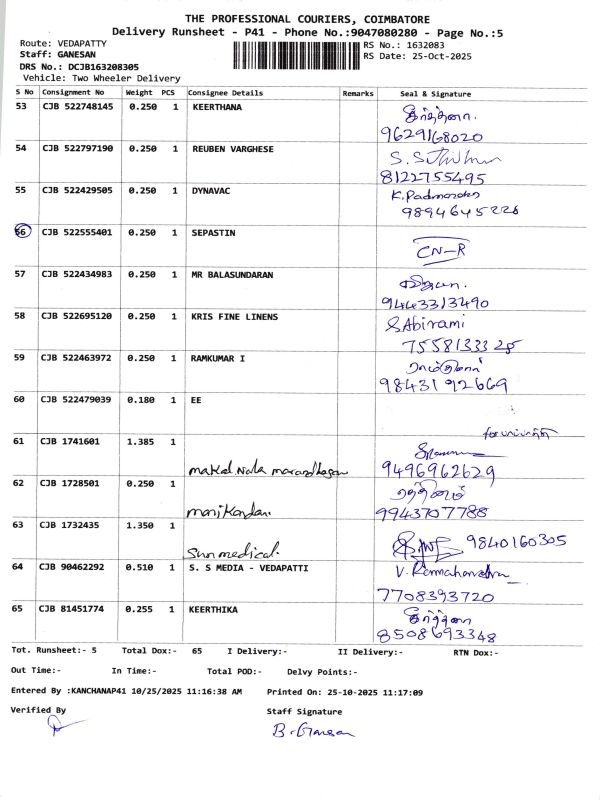 THE PROFESSIONAL COURIERS, COIMBATORE
Delivery Runsheet - P41 - Phone No.:9047080280 - Page No.:5
Route: VEDAPATTY
RS No.: 1632083
Staff: GANESAN
RS Date: 25-Oct-2025
DRS No.: DCJB163208305
Vehicle: Two Wheeler Delivery
S No Consignment No Weight PCS Consignee Details Remarks Seal & Signature
53 CJB 522748145 0.250 1 KEERTHANA
9629168020
54 CJB 522797190 0.250 1 REUBEN VARGHESE
8122755495
55 CJB 522429505 0.250 1 DYNAVAC
9894645228
56 CJB 522555401 0.250 1 SEPASTIN
CN-R
57 CJB 522434983 0.250 1 MR BALASUNDARAN
9443313490
58 CJB 522695120 0.250 1 KRIS FINE LINENS
S.Abirami
7558133328
59 CJB 522463972 0.250 1 RAMKUMAR I
9843192669
60 CJB 522479039 0.180 1 EE
61 CJB 1741601 1.385 1
9496962629
62 CJB 1728501 0.250 1
manikandan.
9943707788
63 CJB 1732435 1.350 1
Sun medical.
9840160305
64 CJB 90462292 0.510 1 S. S MEDIA - VEDAPATTI
7708393720
65 CJB 81451774 0.255 1 KEERTHIKA
8508693348
Tot. Runsheet:- 5 Total Dox:- 65 I Delivery:- II Delivery:- RTN Dox:-
Out Time:- In Time:- Total POD:- Delvy Points:-
Entered By :KANCHANAP41 10/25/2025 11:16:38 AM Printed On: 25-10-2025 11:17:09
Verified By Staff Signature